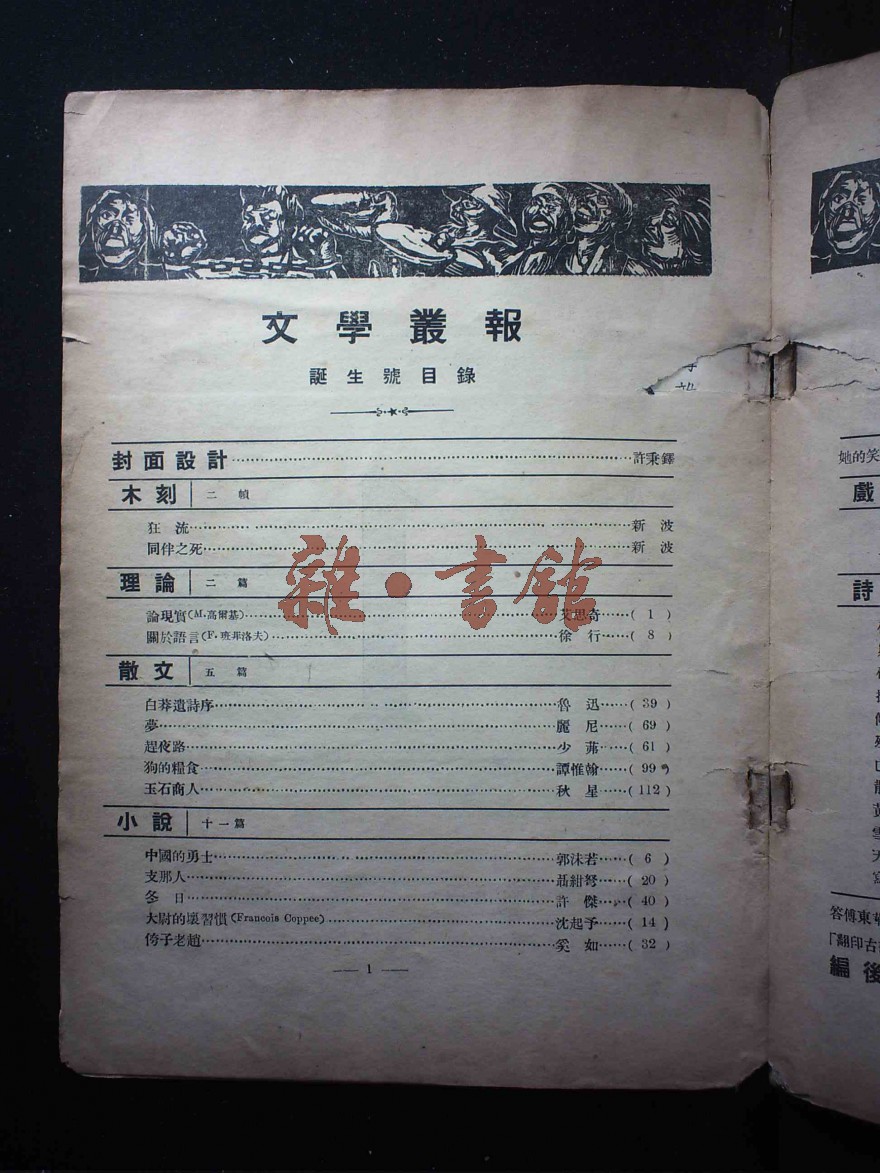 文學叢報
誕生號目錄
封面設計……許秉鐸
木刻 二幀
狂流……新波
同伴之死……新波
理論 二篇
論現實(M.高爾基)……艾思奇……(1)
關於語言(F.班菲洛夫)……徐行……(8)
散文 五篇
白莽遺詩序……魯迅……(39)
夢……麗尼……(69)
趕夜路……少茀……(61)
狗的糧食……譚惟翰……(99)
玉石商人……秋星……(112)
小說 十一篇
中國的勇士……郭沫若……(6)
支那人……聶紺弩……(20)
冬日……許傑……(40)
大尉的壞習慣(Francois Coppee)……沈起予……(14)
侉子老趙……奚如……(32)
— 1 —
雜·書館
她的笑
戲
詩
答東傅
「翻印古
編後